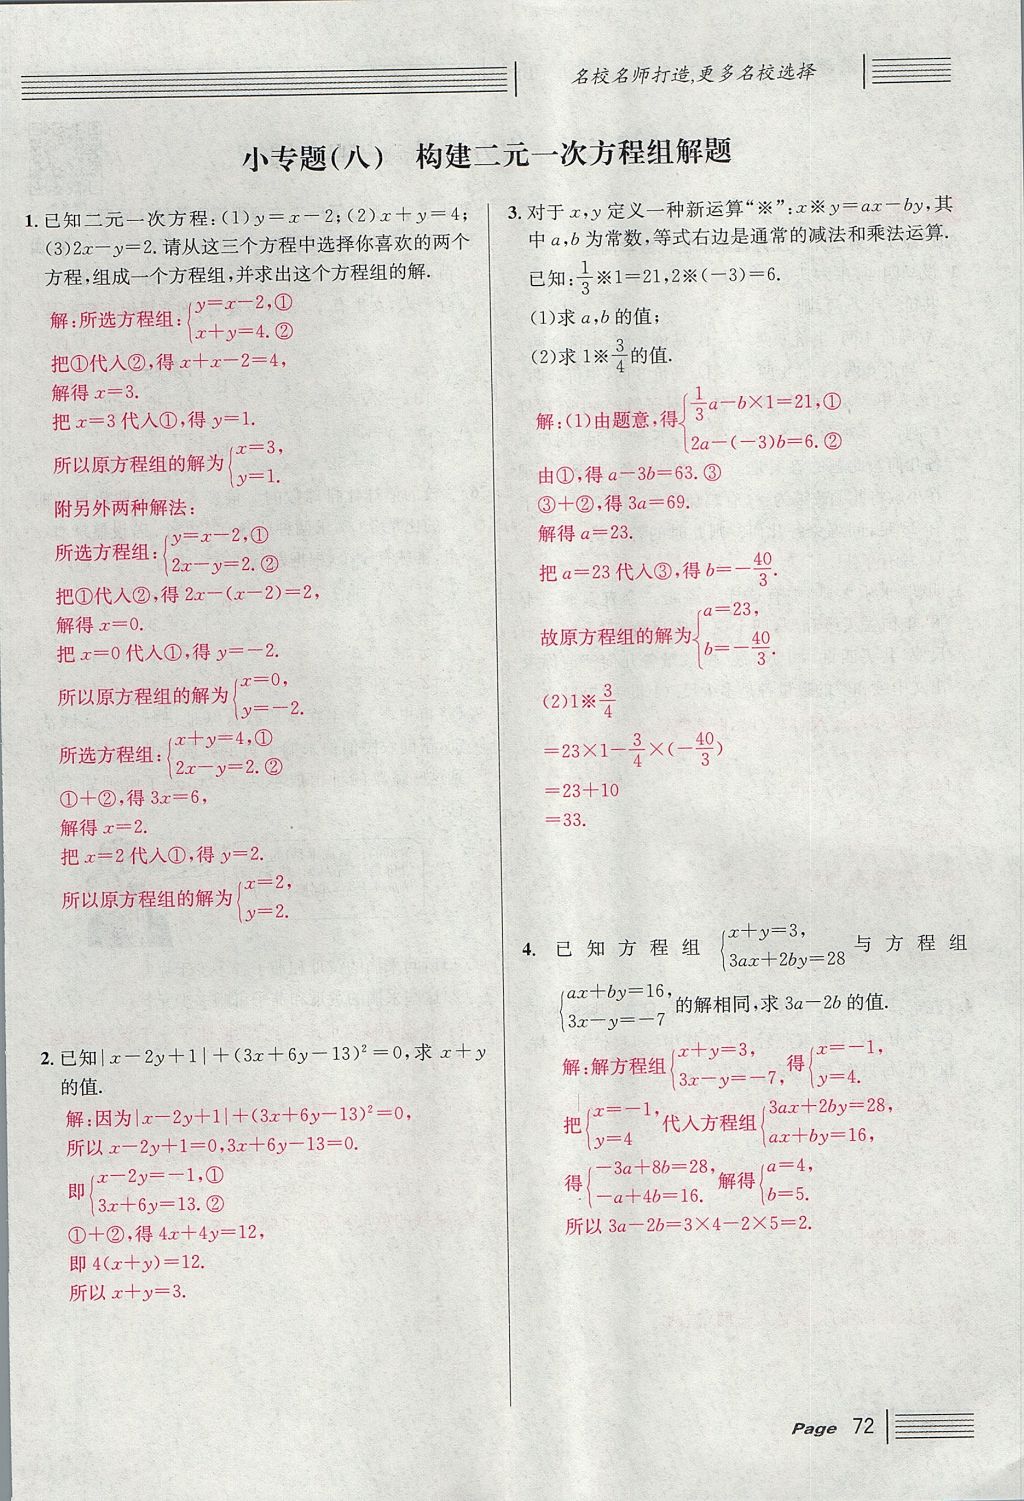 名校名师打造,更多名校选择
小专题(八) 构建二元一次方程组解题
1. 已知二元一次方程:(1)y=x-2;(2)x+y=4;
(3)2x-y=2. 请从这三个方程中选择你喜欢的两个
方程,组成一个方程组,并求出这个方程组的解.
解:所选方程组:{y=x-2,①
x+y=4. ②
把①代入②,得 x+x-2=4,
解得 x=3.
把 x=3 代入①,得 y=1.
所以原方程组的解为{x=3,
y=1.
附另外两种解法:
所选方程组:{y=x-2,①
2x-y=2. ②
把①代入②,得 2x-(x-2)=2,
解得 x=0.
把 x=0 代入①,得 y=-2.
所以原方程组的解为{x=0,
y=-2.
所选方程组:{x+y=4,①
2x-y=2. ②
①+②,得 3x=6,
解得 x=2.
把 x=2 代入①,得 y=2.
所以原方程组的解为{x=2,
y=2.
2. 已知|x-2y+1|+(3x+6y-13)²=0,求 x+y
的值.
解:因为|x-2y+1|+(3x+6y-13)²=0,
所以 x-2y+1=0,3x+6y-13=0.
即{x-2y=-1,①
3x+6y=13. ②
①+②,得 4x+4y=12,
即 4(x+y)=12.
所以 x+y=3.
3. 对于 x,y 定义一种新运算“※”:x※y=ax-by,其
中 a,b 为常数,等式右边是通常的减法和乘法运算.
已知:1/3※1=21,2※(-3)=6.
(1)求 a,b 的值;
(2)求 1※3/4的值.
解:(1)由题意,得{1/3a-b×1=21,①
2a-(-3)b=6. ②
由①,得 a-3b=63. ③
③+②,得 3a=69.
解得 a=23.
把 a=23 代入③,得 b=-40/3.
故原方程组的解为{a=23,
b=-40/3.
(2)1※3/4
=23×1-3/4×(-40/3)
=23+10
=33.
4. 已知方程组{x+y=3,
3ax+2by=28 与方程组
{ax+by=16,
3x-y=-7 的解相同,求 3a-2b 的值.
解:解方程组{x+y=3,
3x-y=-7, 得{x=-1,
y=4.
把{x=-1,
y=4 代入方程组{3ax+2by=28,
ax+by=16,
得{-3a+8b=28,
-a+4b=16. 解得{a=4,
b=5.
所以 3a-2b=3×4-2×5=2.
Page 72